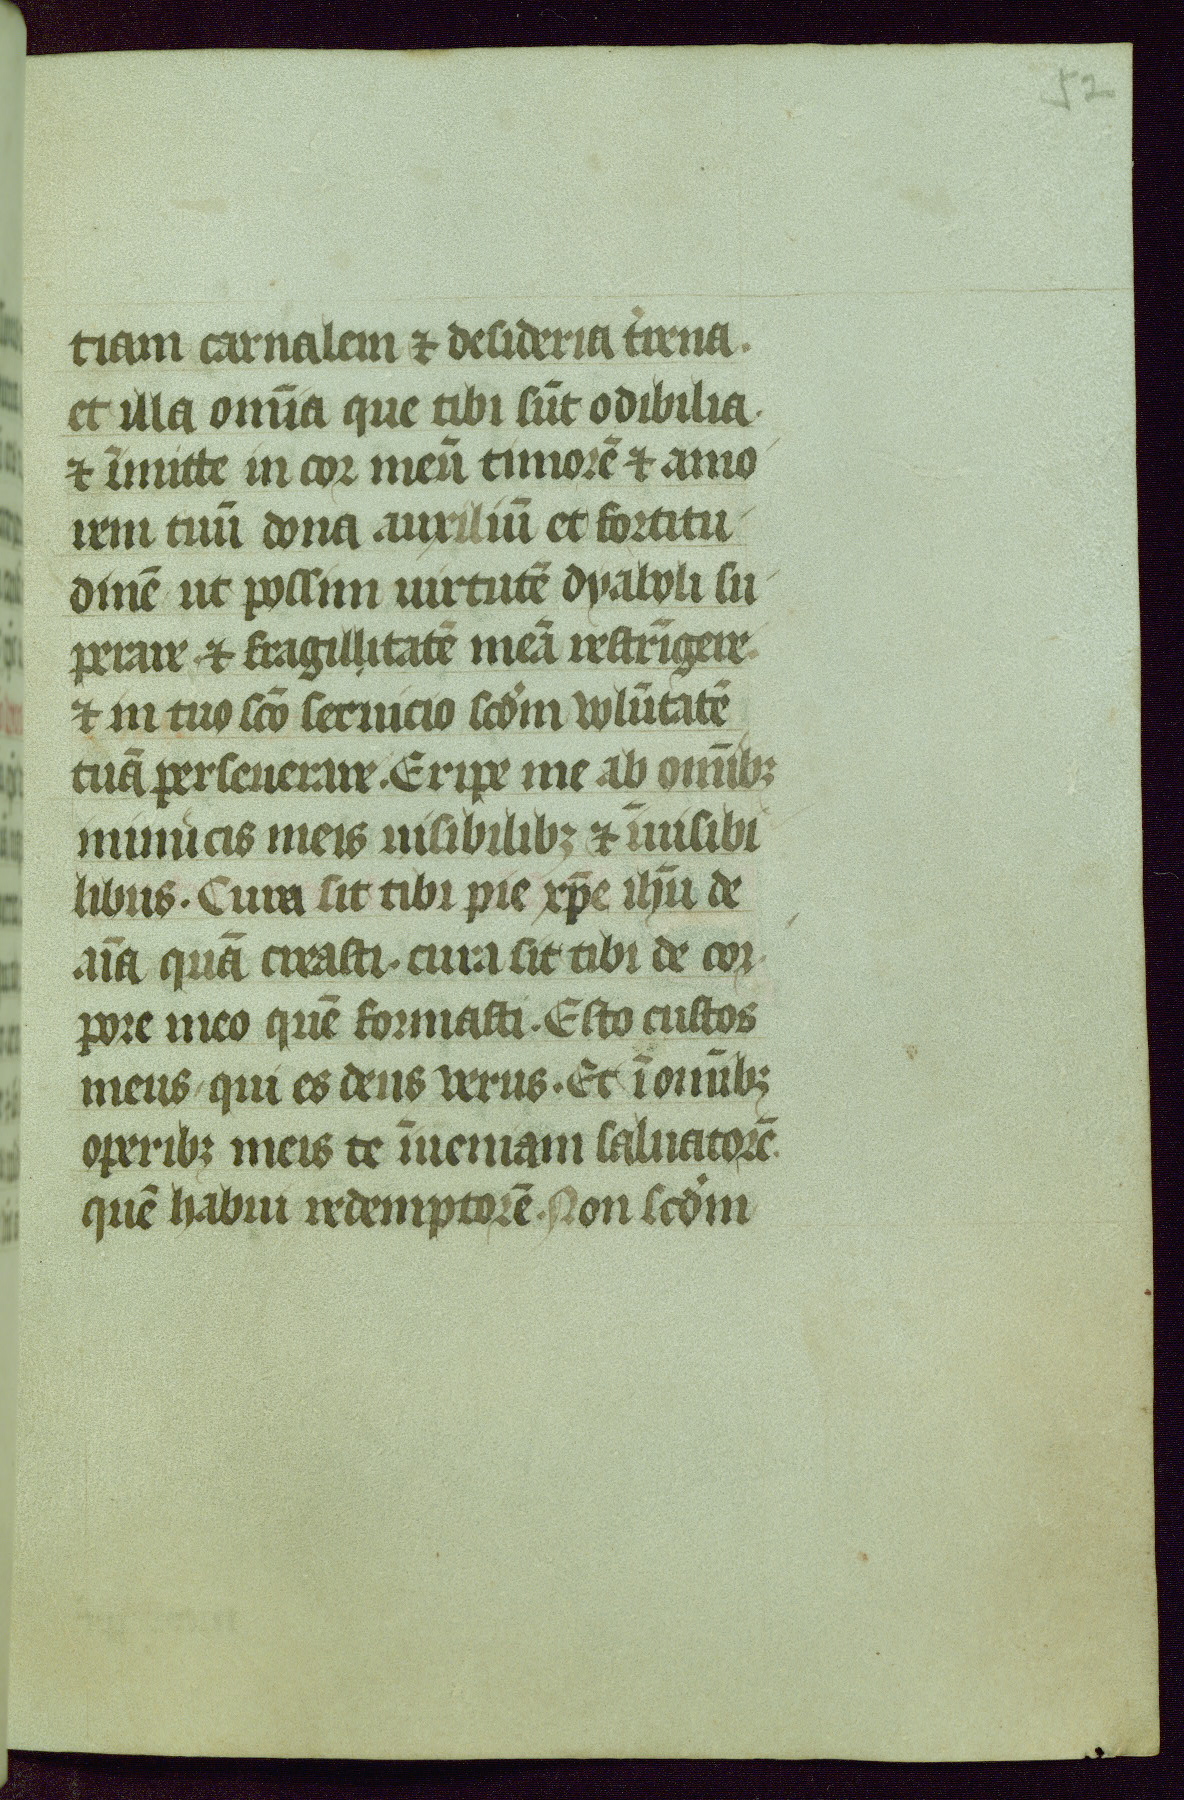 52
tiam carnalem ⁊ desideria t̾rena.
et illa om̅ia que tibi su̅t odibilia.
⁊ i̅mitte in cor meu̅ timore̅ ⁊ amo
rem tuu̅ dona auxiliu̅ et fortitu
dine̅ ut possim uirtute̅ dyaboli su
perare ⁊ fragillitate̅ mea̅ restri̅gere.
⁊ in tuo sc̅o seruicio scd̾m volu̅tate̅
tua̅ perseuerare. Eripe me ab om̅ibꝫ
inimicis meis uisibilibꝫ ⁊ i̅uisibi
libus. Cura sit tibi pie xp̅e ihu̅ de
ai̅a qua̅ creasti. cura sit tibi de cor
pore meo que̅ formasti. Esto custos
meus qui es deus verus. Et i̅ om̅ibꝫ
operibꝫ meis te i̅ueniam saluatore̅.
que̅ habui redemptore̅. Non scd̾m